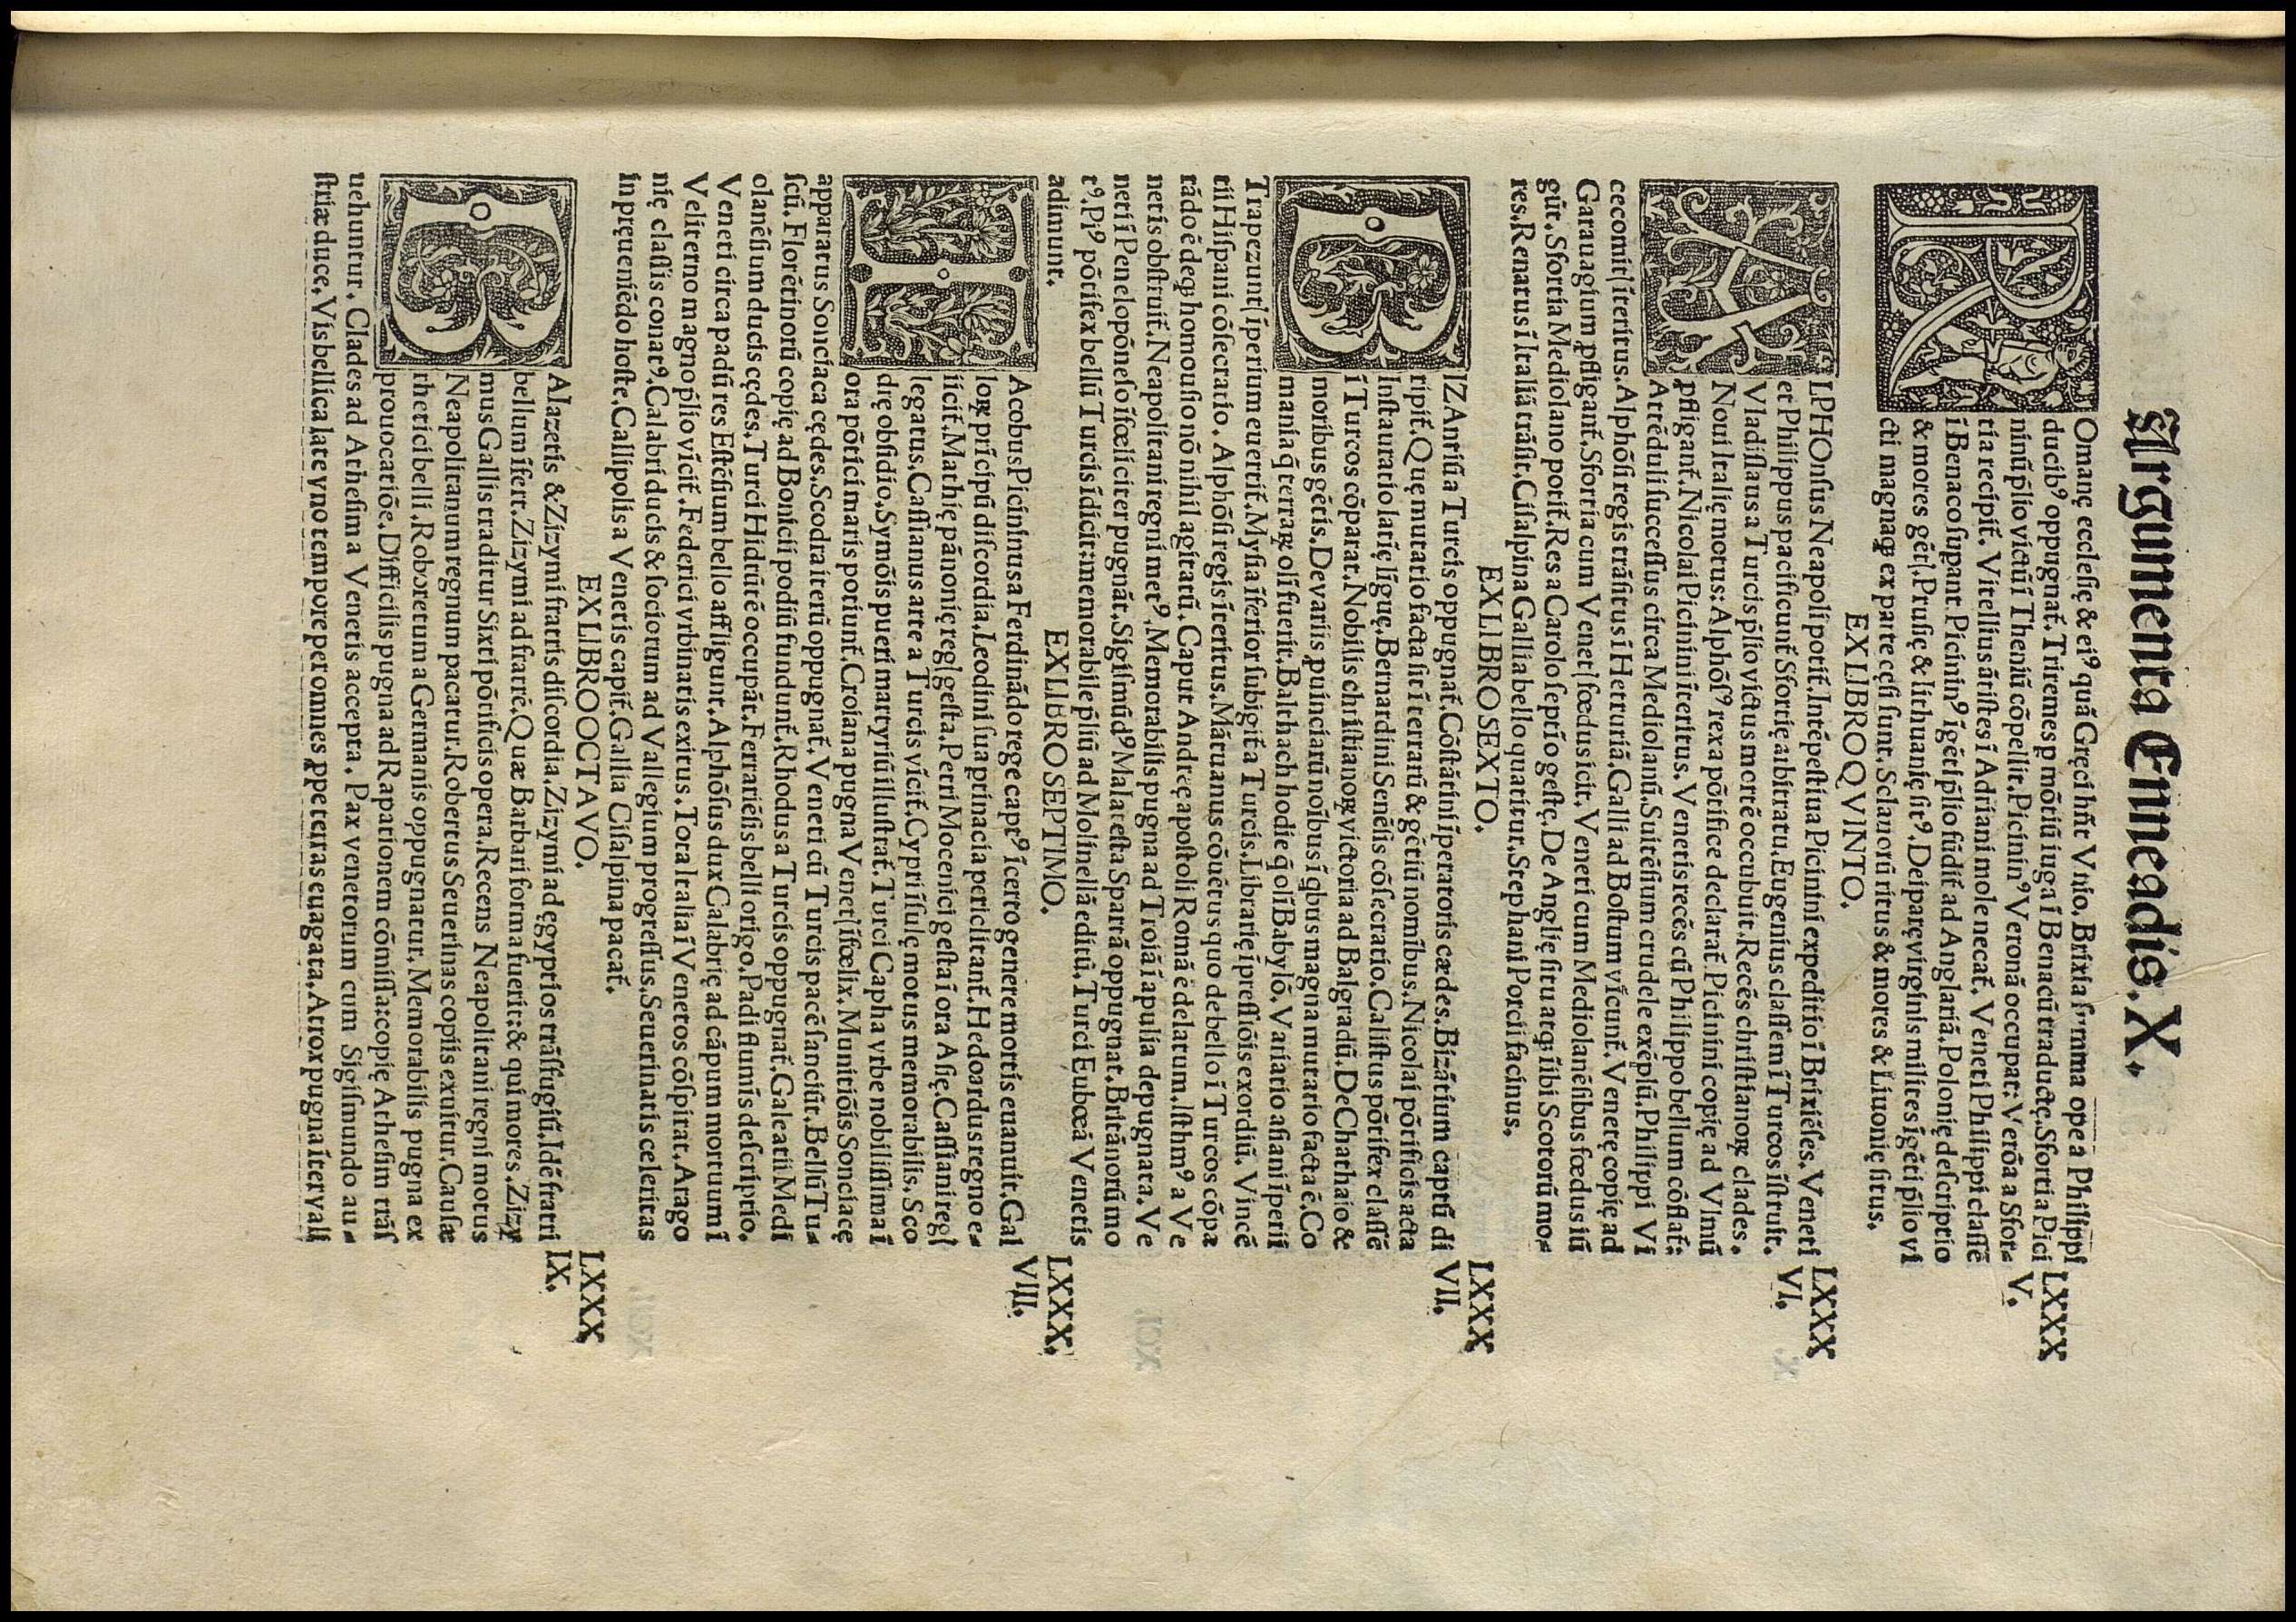 Argumenta Enneadis. X.
ROmanę eccleſię & ei⁹ quā Gręci hn̄t Vnío. Bríxía ſumma ope a Philippi
ducib⁹ oppugnat̄. Triremes p mōtiū iuga ī Benacū traductę. Sfortia Pici
ninū p̄lio victū ī Theniū cōpellit. Picinin⁹ Veronā occupat: Verōa a Sfor⸗
tia recipit̄. Vitellius ātiſtes ī Adriani mole necat̄. Veneti Philippi claſſē
ī Benaco ſupant. Picinin⁹ īgēti p̄lio fūdit̄ ad Anglariā. Polonię deſcriptio
& mores gēt̄. Pruſię & lithuanię ſit⁹. Deiparę virginis milites īgēti p̄lio vi
cti magnaꝗ ex parte cęſi ſunt. Sclanorū ritus & mores & Liuonię ſitus.
LXXX
V.
EX LIBRO QVINTO.
ALPHOnſus Neapoli potit̄. Intēpeſtiua Picinini expeditio ī Brixiēſes. Veneti
et Philippus pacificunt̄ Sfortię arbitratu. Eugenius claſſem ī Turcos īſtruit.
Vladiſlaus a Turcis p̄lio victus mortē occubuit. Recēs chriſtianoꝝ clades.
Noui Italię motus: Alphōſ⁹ rex a pōtifice declarat̄. Picinini copię ad Vlmū
pfligant̄. Nicolai Picinini īteritus. Veneti recēs cū Philippo bellum cōflat̄:
Artēduli ſucceſſus circa Mediolanū. Suitēſium crudele exēplū. Philippi Vi
cecomit̄ īteritus. Alphōſi regis trāſitus ī Hetruriā. Galli ad Boſtum vīcunt̄. Venetę copię ad
Garauagium pfligant̄. Sfortia cum Venet̄ fœdus icit. Veneti cum Mediolanēſibus fœdus iū
gūt. Sfortia Mediolano potit̄. Res a Carolo ſeptīo geſtę. De Anglię ſitu atqꝫ ībi Scotorū mo⸗
res. Renatus ī Italiā trāſit. Ciſalpina Gallia bello quatitur. Stephani Porcii facinus.
LXXX
VI.
EX LIBRO SEXTO.
BIZAntiū a Turcis oppugnat̄. Cōſtātini īperatoris cædes. Bizātium captū di
ripit̄. Quę mutatio facta ſit ī terrarū & gētiū nomībus. Nicolai pōtificis acta
Inſtauratio latię līguę. Bernardini Senēſis cōſecratio. Caliſtus pōtifex claſſē
ī Turcos cōparat. Nobilis chriſtianoꝝ victoria ad Balgradū. De Chathaio &
moribus gētis. De variis puinciarū noībus ī qbus magna mutatio facta ē. Co
mania q̄ terraꝝ olī fuerit. Balthach hodie q̄ olī Babylō. Variatio aſiani īperii
Trapezunt̄ īperium euertit̄. Myſia īferior ſubigit̄ a Turcis. Librarię īpreſſiōis exordiū. Vincē
tii Hiſpani cōſecratio. Alphōſi regis īteritus. Mātuanus cōuētus quo de bello ī Turcos cōpa
rādo ē deqꝫ homouſio nō nihil agitatū. Caput Andreę apoſtoli Romā ē delatum. Iſthm⁹ a Ve
netis obſtruit̄. Neapolitani regni met⁹. Memorabilis pugna ad Troiā ī apulia depugnata. Ve
neti ī Penelopōneſo īfœliciter pugnāt. Sigiſmūd⁹ Malateſta Spartā oppugnat. Britānorū mo
t⁹. Pi⁹ pōtifex bellū Turcis īdicit: memorabile p̄liū ad Molinellā editū. Turci Eubœā Venetis
adimunt.
LXXX
VII.
EX LIBRO SEPTIMO.
IAcobus Picininus a Ferdinādo rege capt⁹ īcerto genere mortis euanuit. Gal
loꝝ prīcipū diſcordia. Leodini ſua ptinacia periclitant̄. Hedoardus regno e⸗
iicit̄. Mathię pānonię reḡ geſta. Petri Mocenici geſta ī ora Aſię. Caſſiani reḡ
legatus. Caſſianus arte a Turcis vīcit̄. Cypri īſulę motus memorabilis. Sco
drę obſidio. Symōis pueri martyriū illuſtrat̄. Turci Capha vrbe nobiliſſima ī
ora pōtici maris potiunt̄. Croiana pugna Venet̄ īfœlix. Munitiōis Sonciacę
apparatus Sonciaca cędes. Scodra iterū oppugnat̄. Veneti cū Turcis pacē ſanciūt. Bellū Tu⸗
ſcū. Florētinorū copię ad Bonicii podiū fundunt̄. Rhodus a Turcis oppugnat̄. Galeatii Medi
olanēſium ducis cędes. Turci Hidrūtē occupāt. Ferrariēſis belli origo. Padi flumīs deſcriptio.
Veneti circa padū res Eſtēſium bello affligunt. Alphōſus dux Calabrię ad cāpum mortuum ī
Veliterno magno p̄lio vīcit̄. Federici vrbinatis exitus. Tora Italia ī Venetos cōſpirat. Arago
nię claſſis conat⁹. Calabri ducis & ſociorum ad Vallegium progreſſus. Seuerinatis celeritas
in pręueniēdo hoſte. Callipolis a Venetis capit̄. Gallia Ciſalpina pacat̄.
LXXX.
VIII.
EX LIBRO OCTAVO.
BAIazetis & Zizymi fratris diſcordia. Zizymi ad ęgyptios trāſfugiū. Idē fratri
bellum īfert. Zizymi ad fratrē. Quæ Barbari forma fuerit: & qui mores. Zizy
mus Gallis traditur Sixti pōtificis opera. Recens Neapolitani regni motus
Neapolitanum regnum pacatur. Robertus Seuerinas copiis exuitur. Cauſæ
rhetici belli. Roboretum a Germanis oppugnatur. Memorabilis pugna ex
prouocatiōe. Difficilis pugna ad Rapationem cōmiſſa: copię Atheſim trāſ
uehuntur. Clades ad Atheſima Venetis accepta. Pax venetorum cum Sigiſmundo au⸗
ſtriæ duce. Vis bellica late vno tempore per omnes ꝓpe terras euagata. Atrox pugna īteruallī
LXXX
IX.